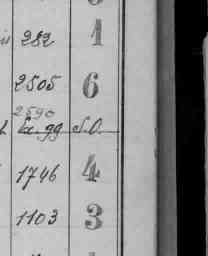 282 1
2505 6
2590
Ex. gg S.O.
1746 4
1103 3